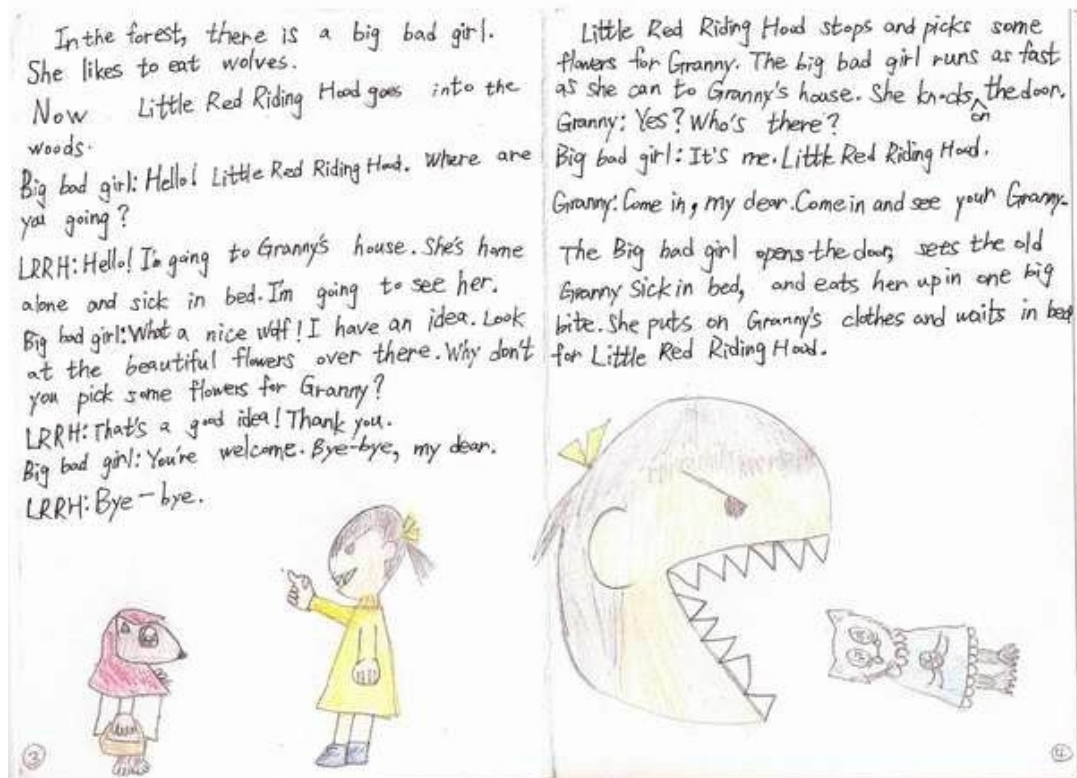 In the forest, there is a big bad girl.
She likes to eat wolves.
Now Little Red Riding Hood goes into the
woods.
Big bad girl: Hello! Little Red Riding Hood. Where are
you going?
LRRH: Hello! I'm going to Granny's house. She's home
alone and sick in bed. I'm going to see her.
Big bad girl: What a nice wolf! I have an idea. Look
at the beautiful flowers over there. Why don't
you pick some flowers for Granny?
LRRH: That's a good idea! Thank you.
Big bad girl: You're welcome. Bye-bye, my dear.
LRRH: Bye-bye.
3
Little Red Riding Hood stops and picks some
flowers for Granny. The big bad girl runs as fast
as she can to Granny's house. She knocks on the door.
Granny: Yes? Who's there?
Big bad girl: It's me. Little Red Riding Hood.
Granny: Come in, my dear. Come in and see your Granny.
The Big bad girl opens the door, sets the old
Granny Sick in bed, and eats her up in one big
bite. She puts on Granny's clothes and waits in bed
for Little Red Riding Hood.
4